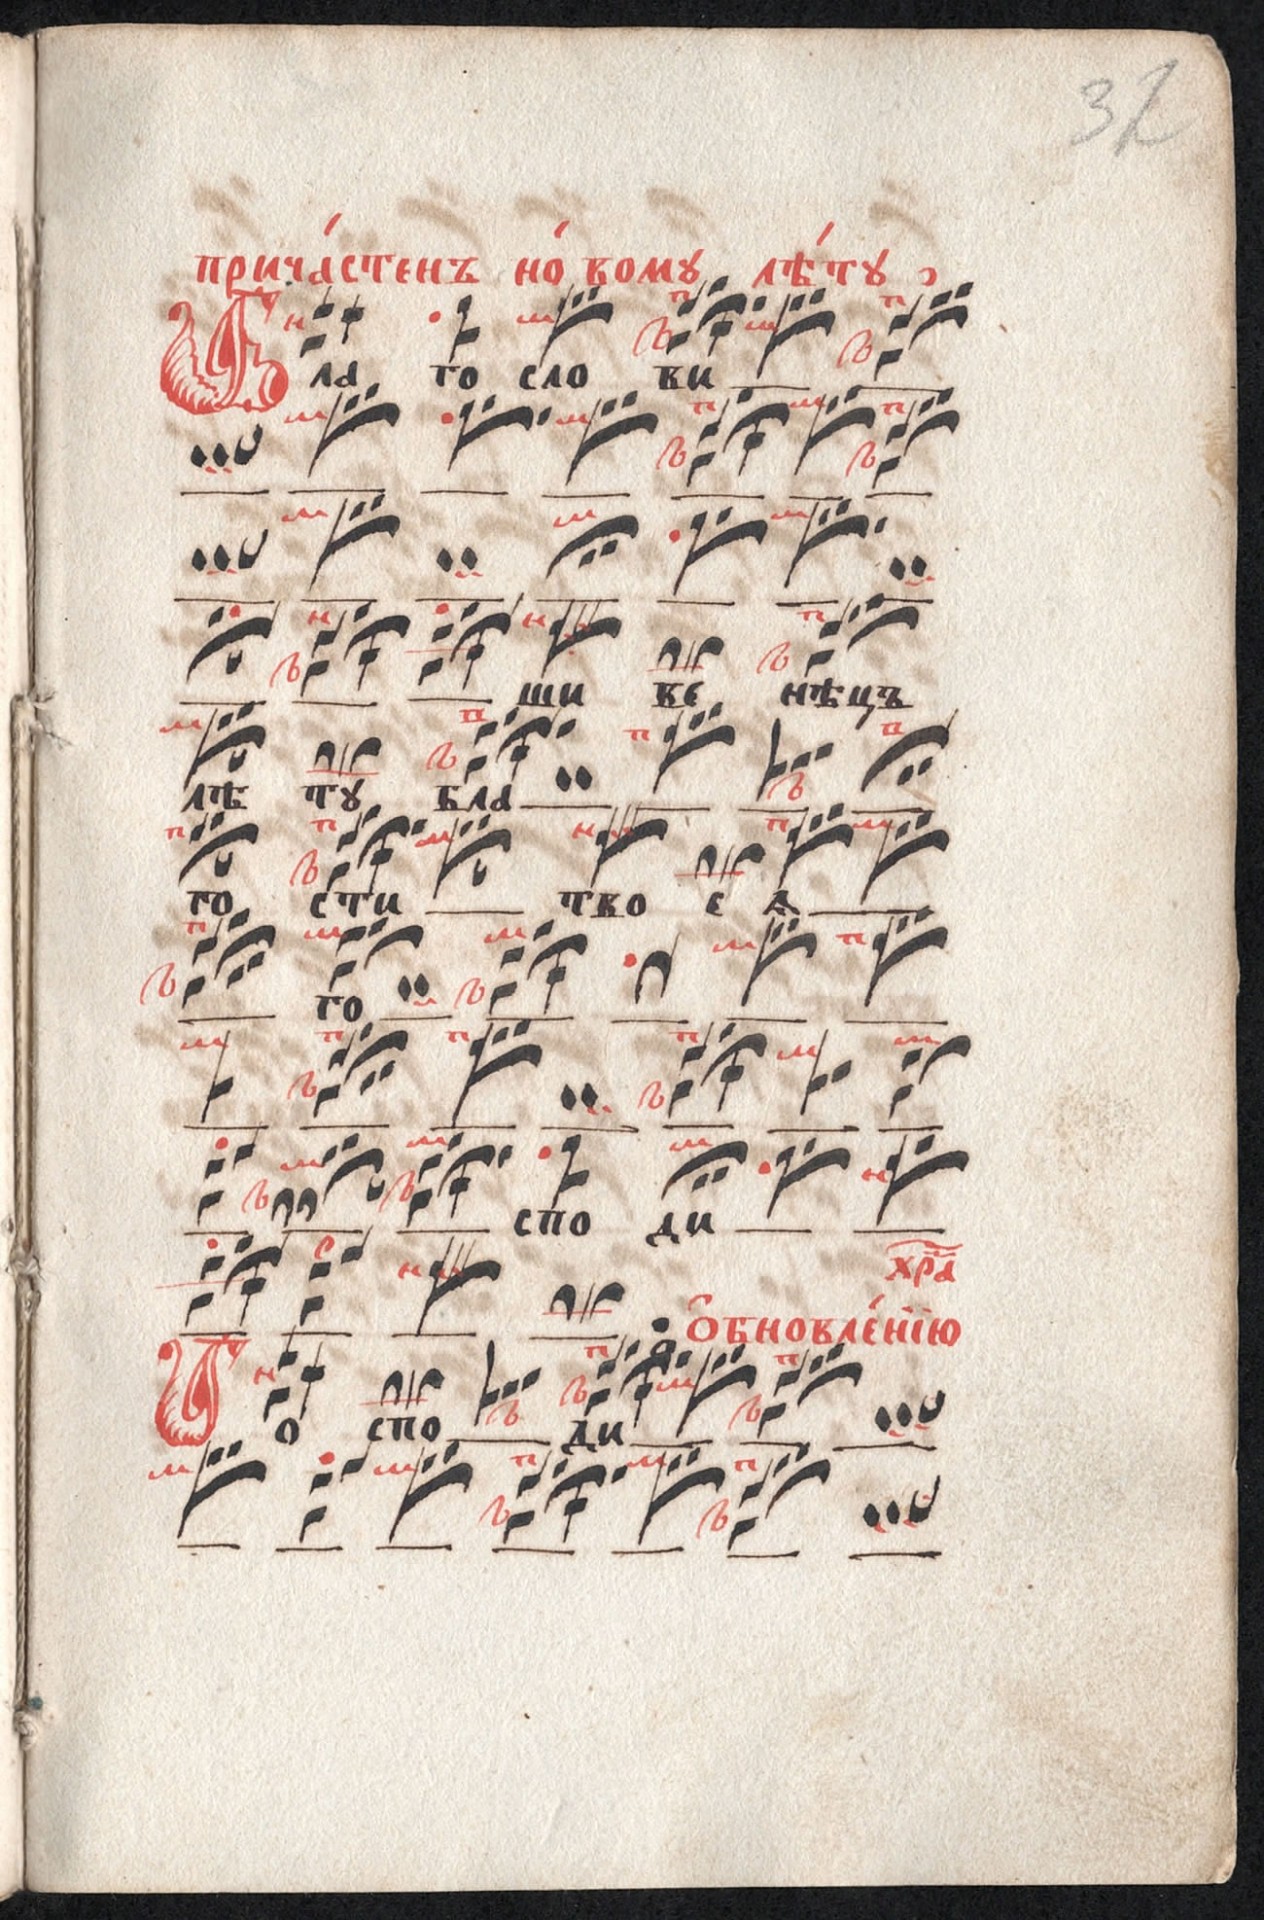 32
причáстенъ нóвому лѣ́ту
Бла го сло ви
ши ве нѣцъ
лѣ ту бла
го сти тво е ѧ
го
спо ди
хра́
Ѻбновле́нїю
Го спо ди